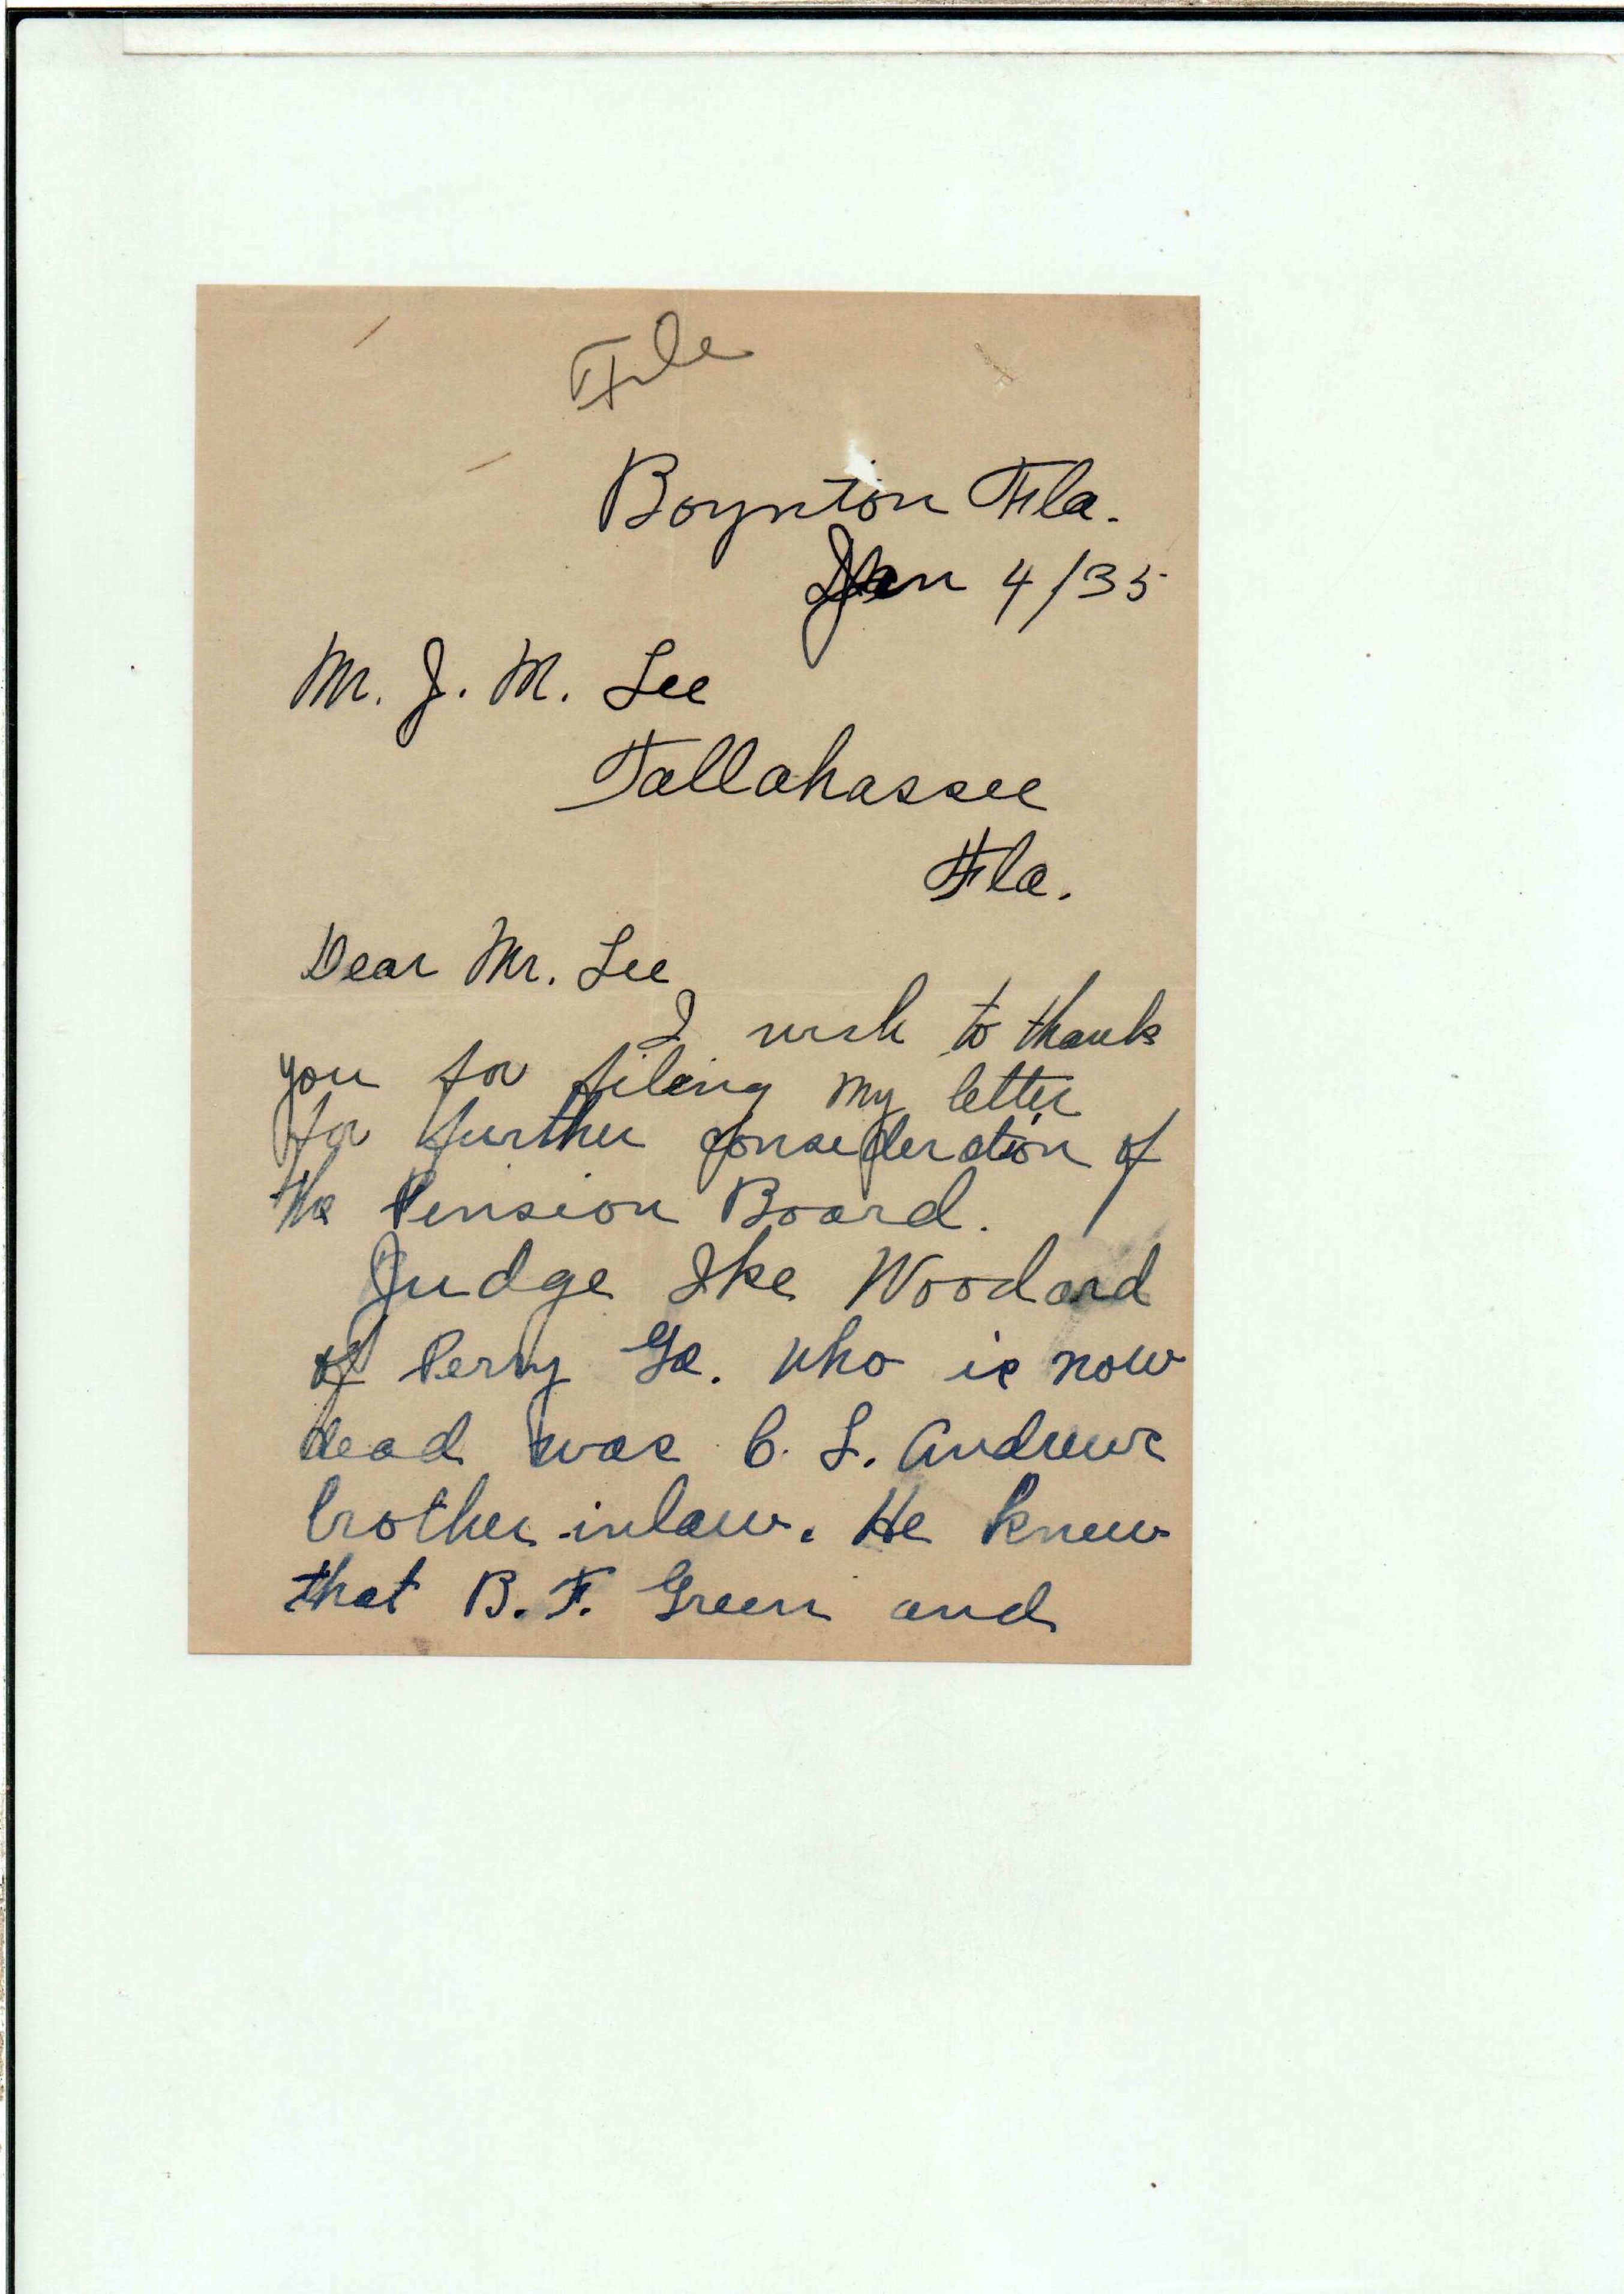 File
Boynton Fla.
Jan 4/35
Mr. J. M. Lee
Tallahassee
Fla.
Dear Mr. Lee
I wish to thank
you for filing my letter
for further consideration of
the Pension Board.
Judge Ike Woodard
of Perry Ga. who is now
dead was C. L. Andrews
brother inlaw. He knew
that B. F. Green and